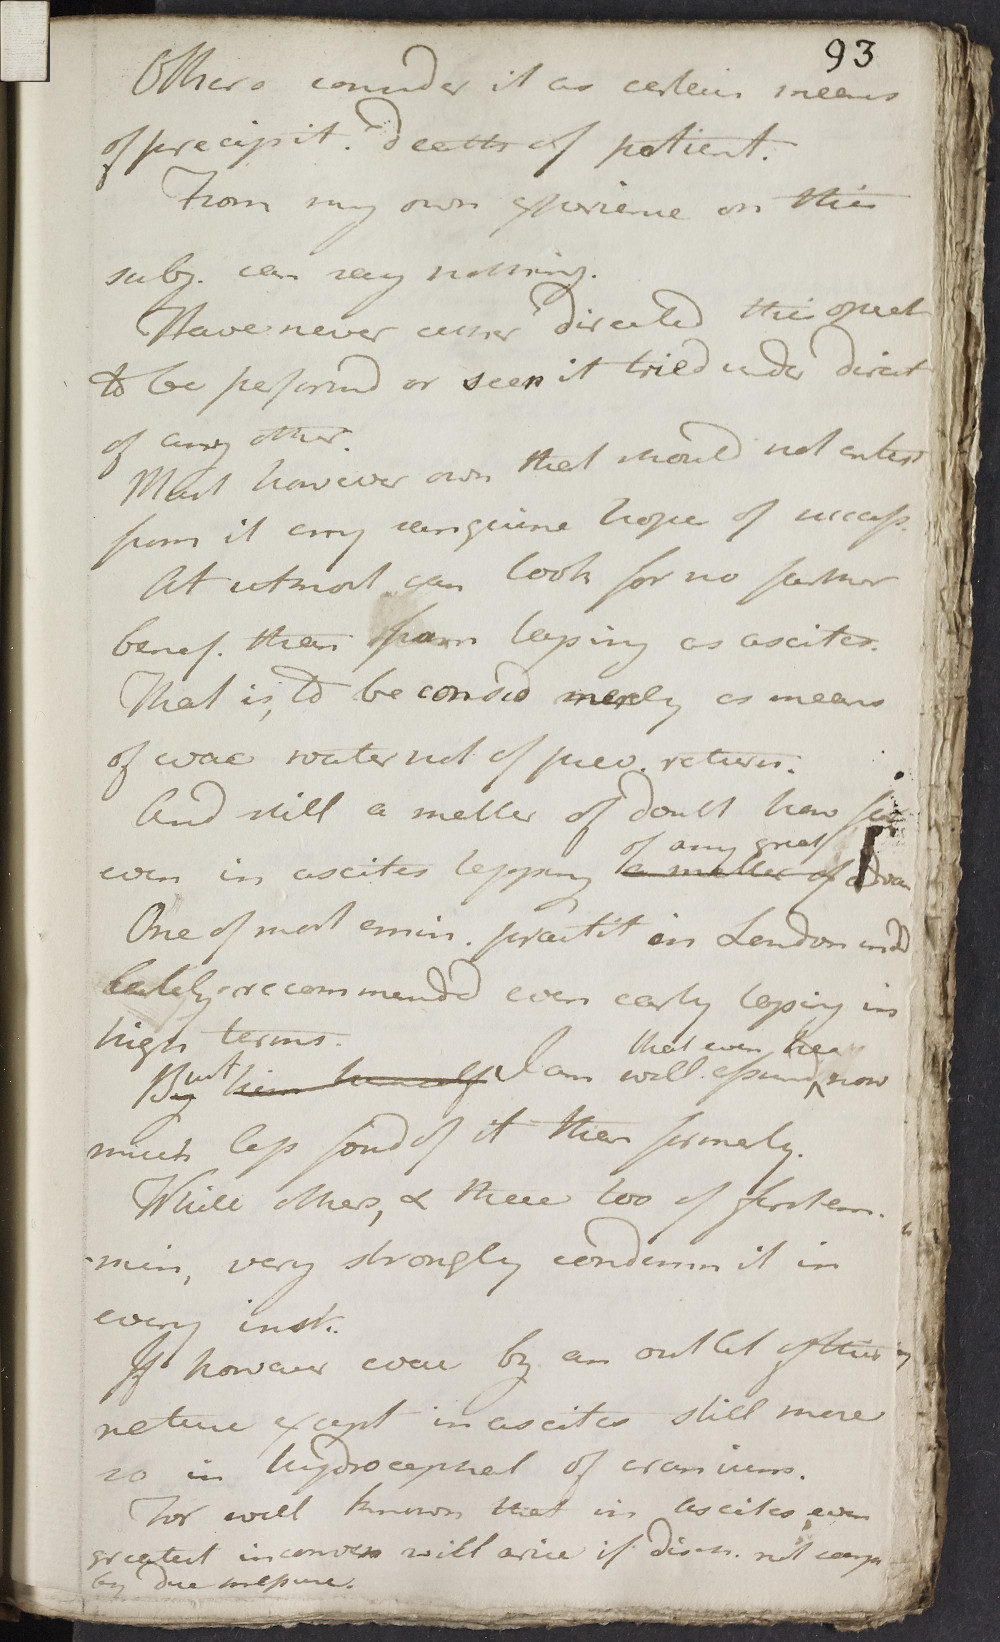 93
Others consider it as certain means
of precipit. death of patient.
From my own experience on this
subj. can say nothing.
Have never either directed this operat
to be performd or seen it tried under direct
of any other.
Must however own that should not entert
from it any sanguine hope of success.
At utmost can look for no farther
benef. than from taping as ascites.
That is, to be considd merely as means
of evac water not of prev. return.
And still a matter of doubt how far
of any great
even in ascites tapping a matter of advan
One of most emin. practit in London indd
lately recommendd even early taping in
high terms.
that even he
But him himself I am well assurd now
much less fond of it than formerly.
While others, & these too of first em-
min, very strongly condemn it in
every inst.
If however evac by an outlet of this
nature except in ascites still more
so in hydrocephal of cranium.
For well known that in ascites even
greatest inconven will arise if disch. not
by due measure.